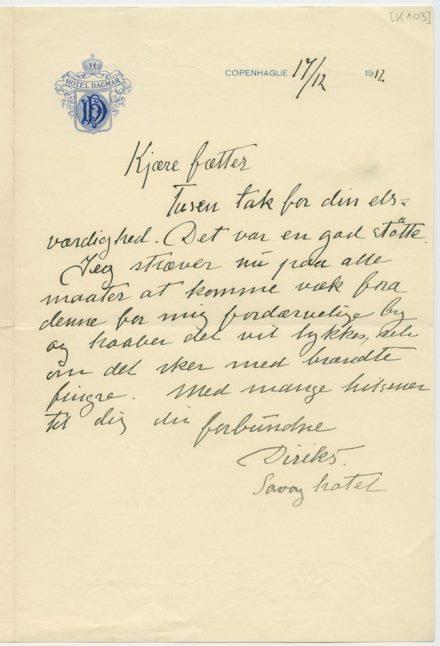 [K 103]
HOTEL DAGMAR
HD
COPENHAGUE 17/12 1912
Kjære fætter
Tusen tak for din els-
værdighed. Det var en god støtte.
Jeg stræver nu paa alle
maater at komme væk fra
denne for mig fordærvelige by
og haaber det vil lykkes, selv
om det sker med brændte
fingre. Med mange hilsener
til dig din forbundne
Diriks.
Savoy hotel